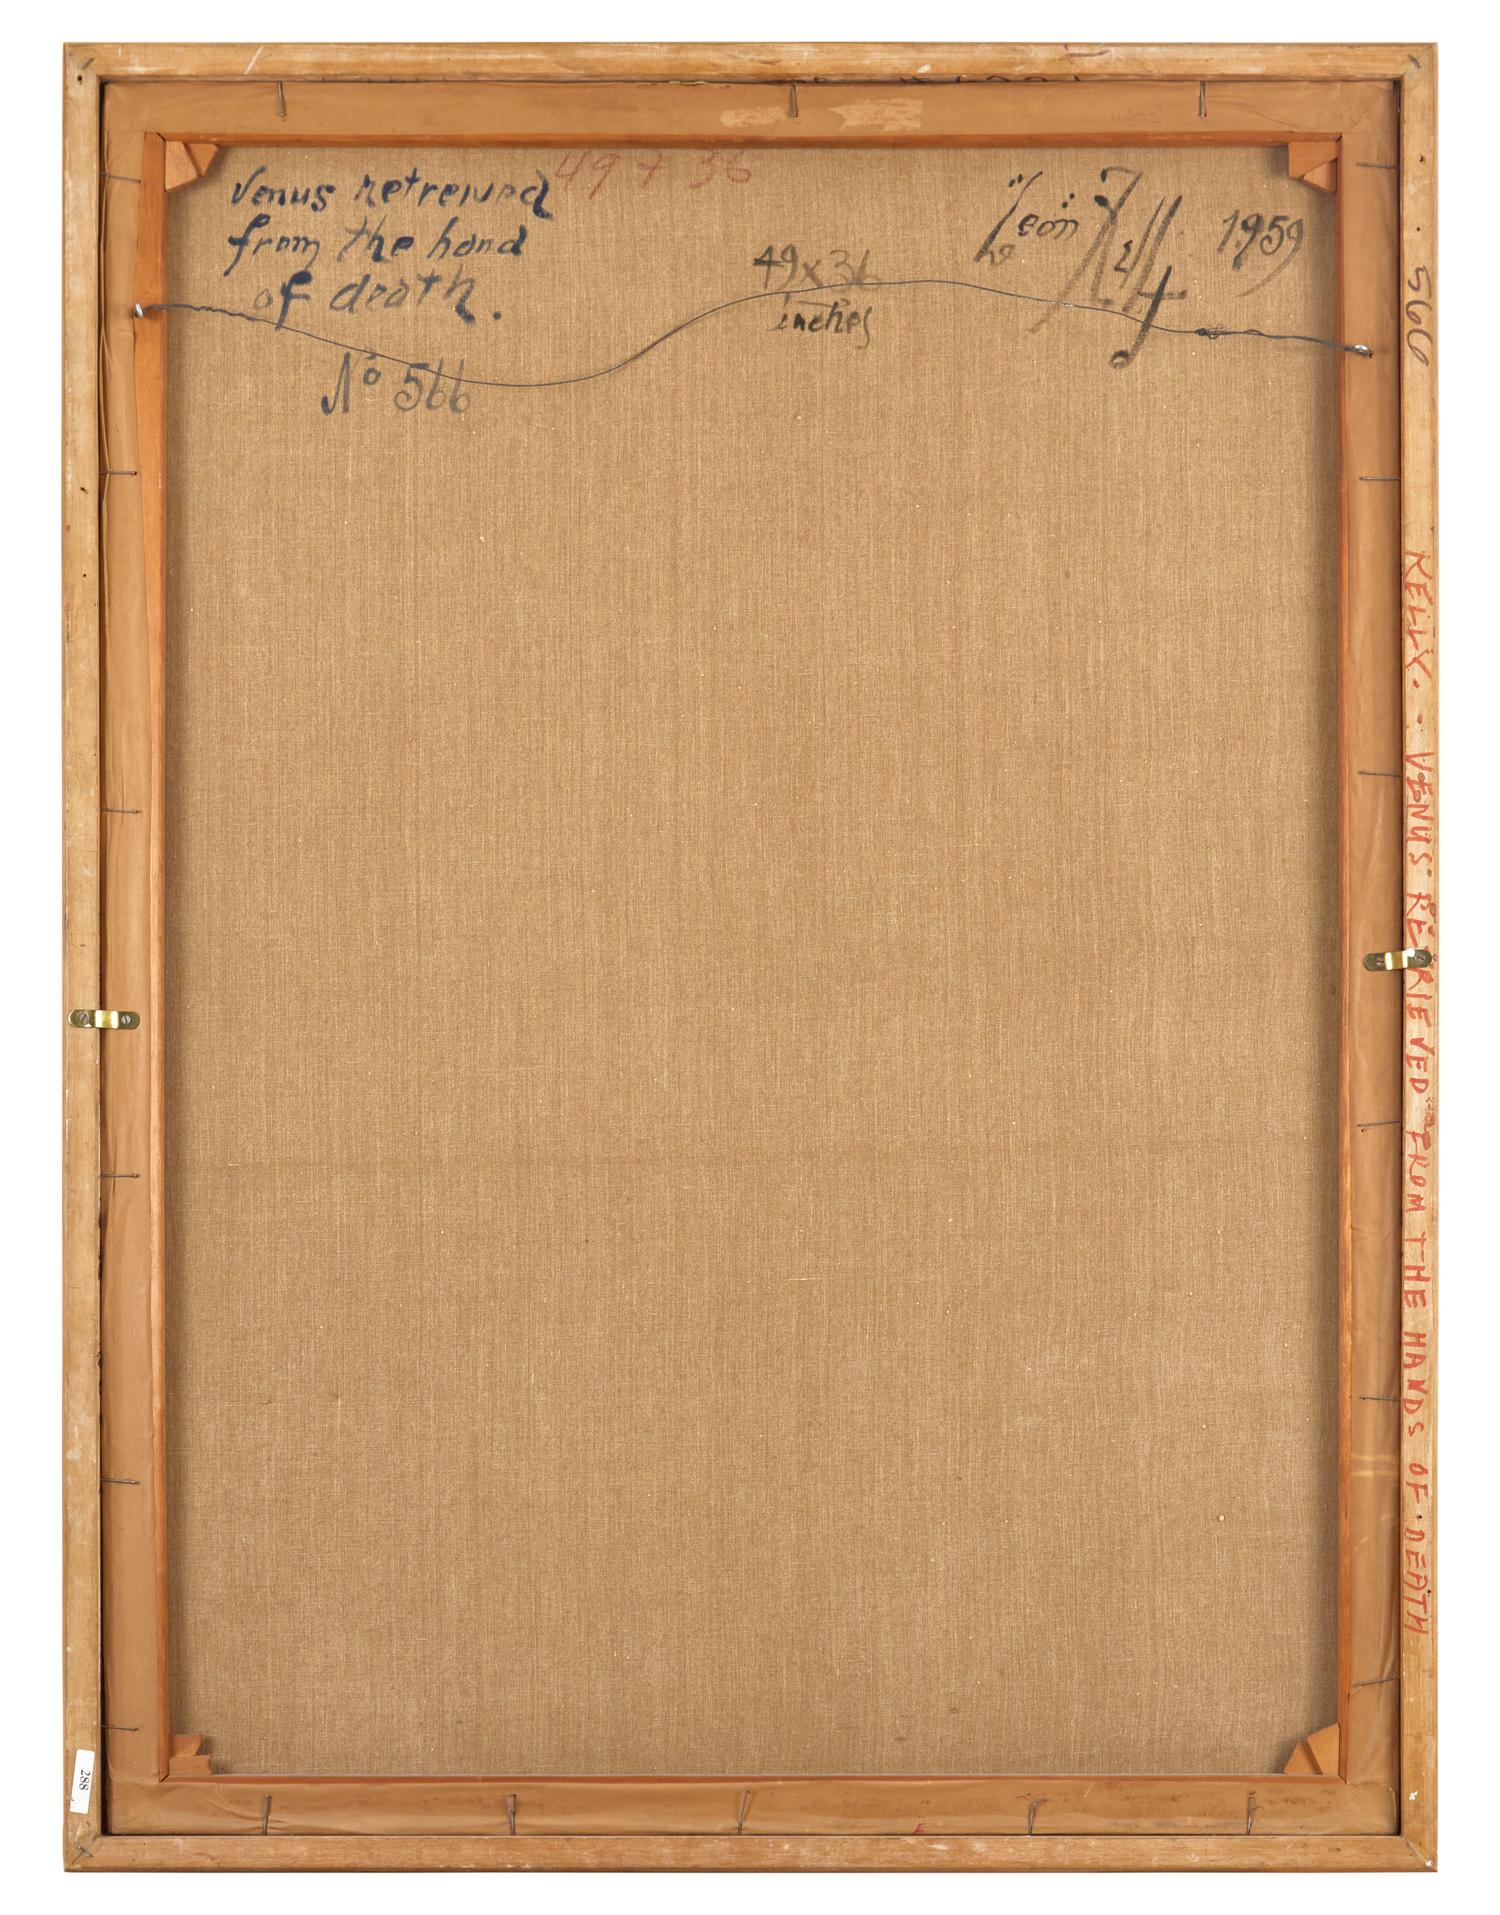 Venus retreived
from the hand
of death.
No 566
49 x 36
49 x 36
inches
Leon Kelly 1959
566
KELLY. - VENUS RETRIEVED FROM THE HANDS OF DEATH
288